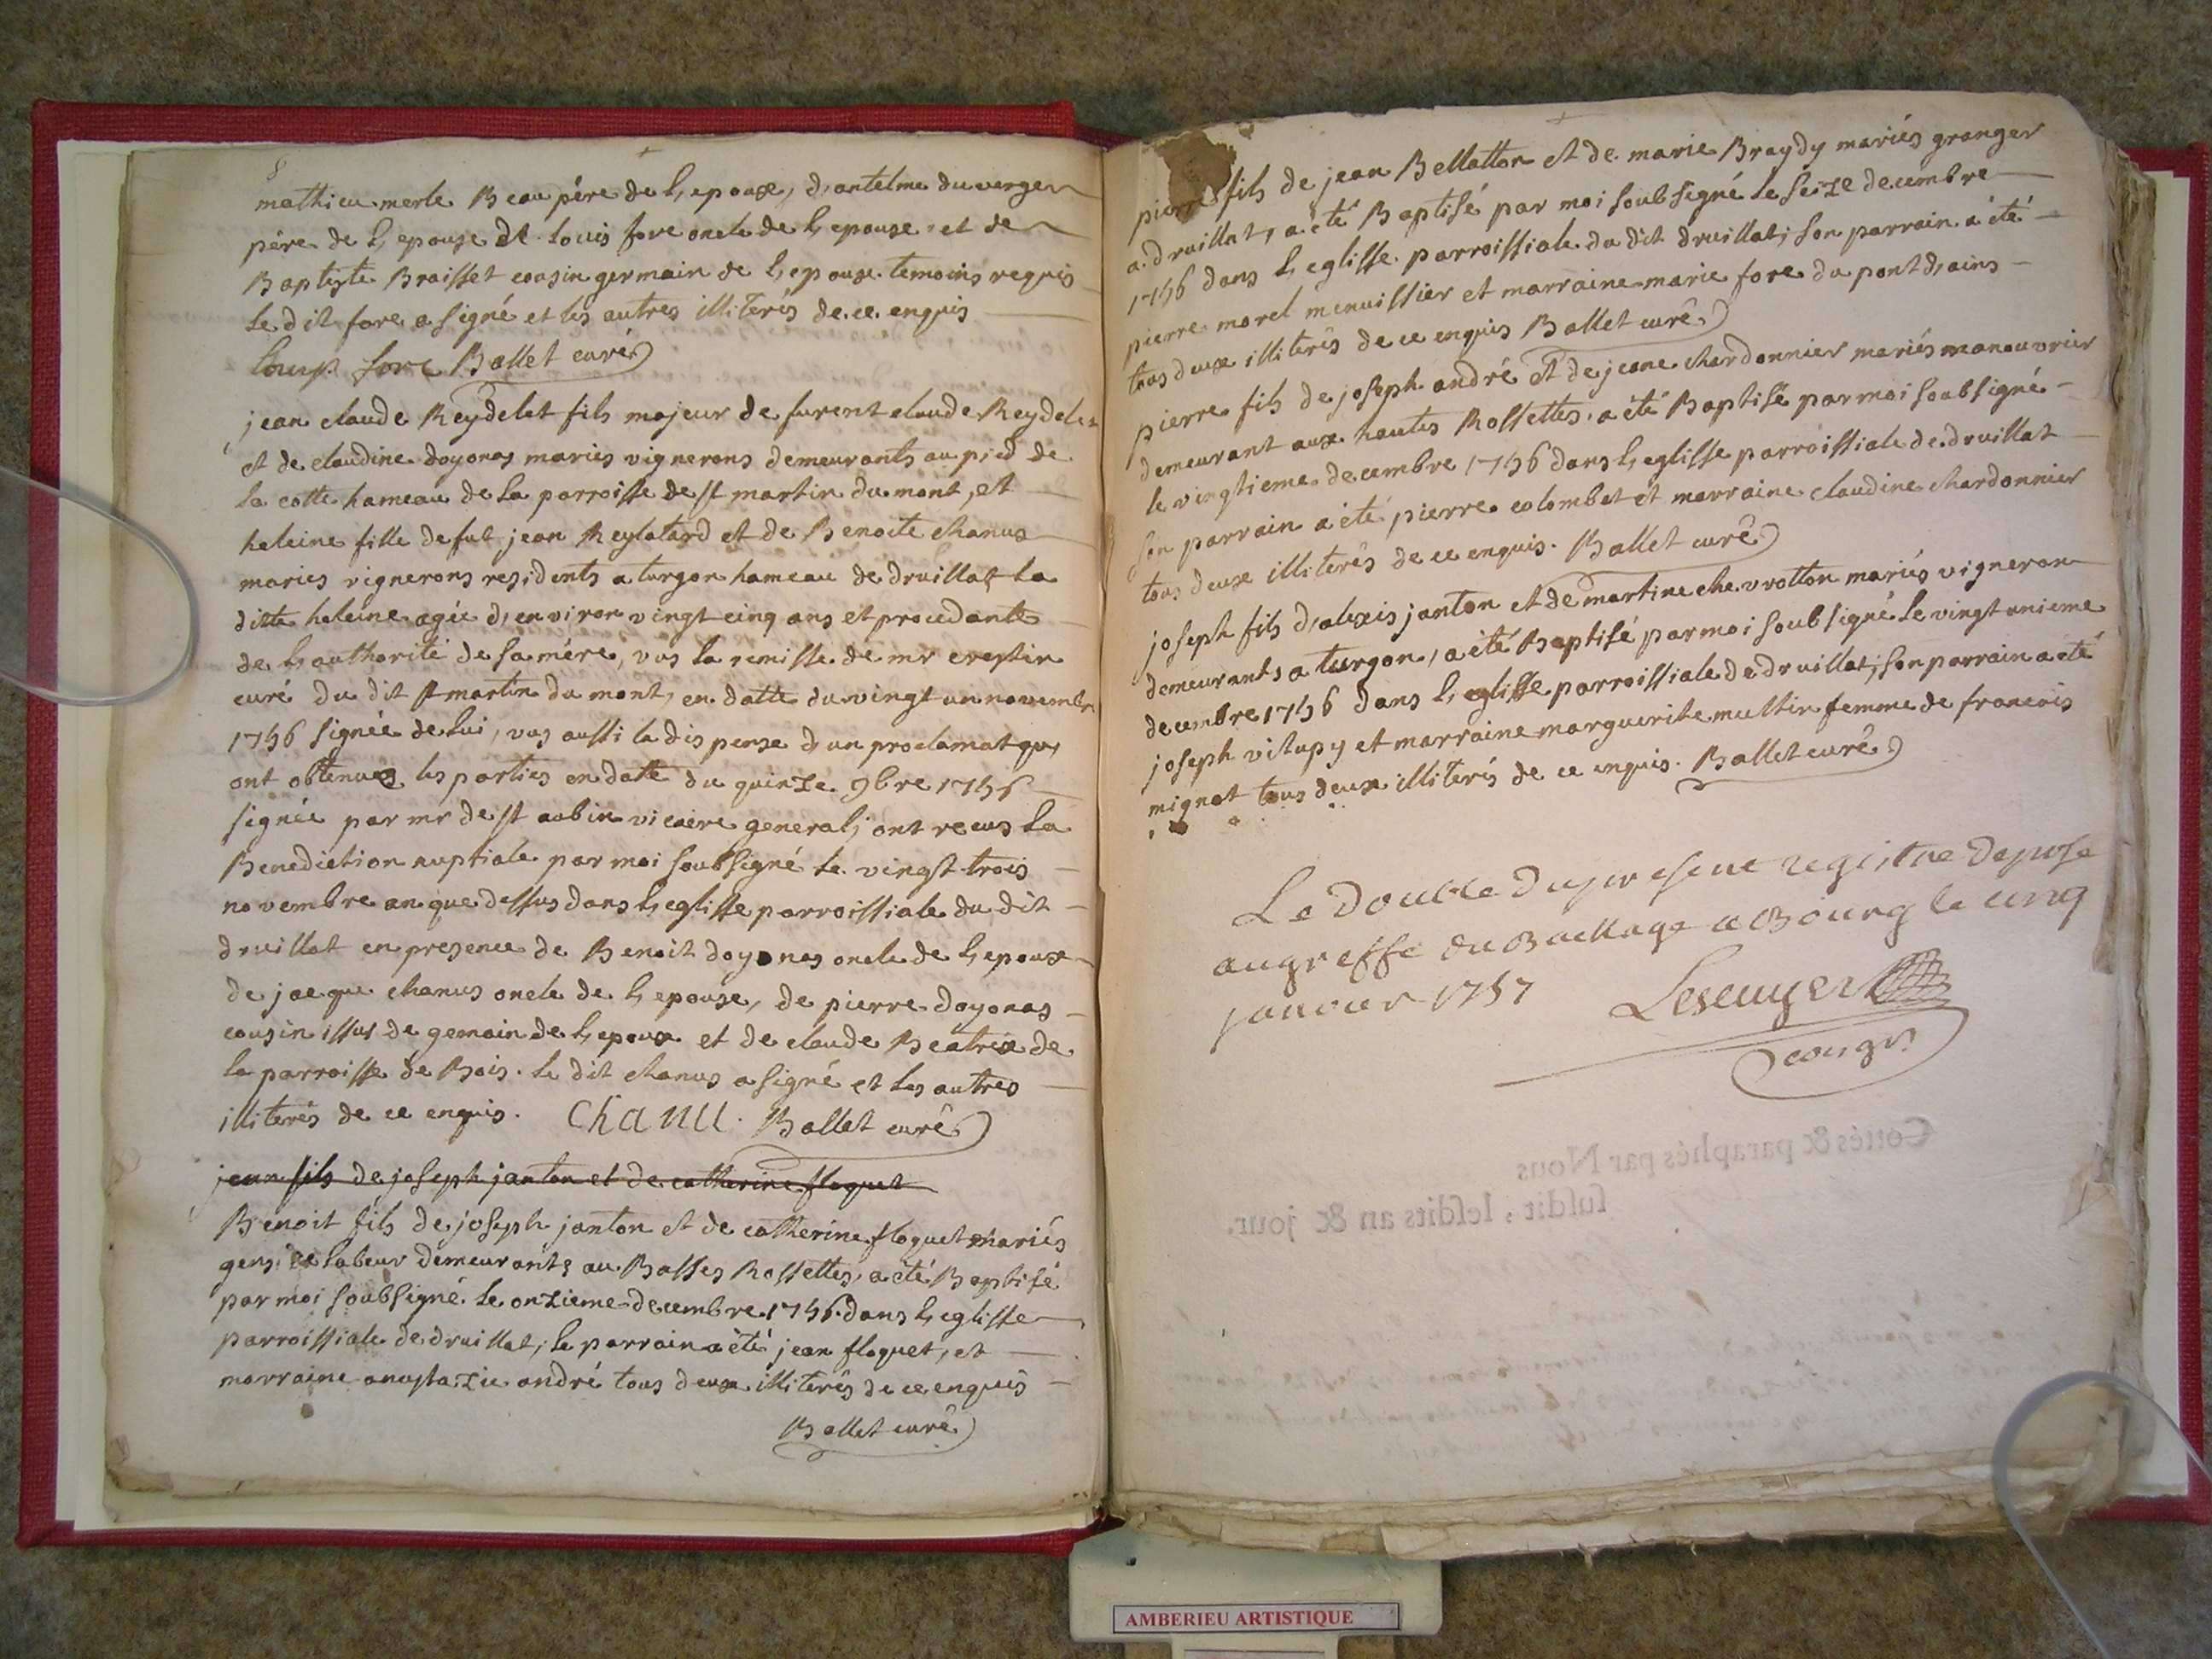 mathieu merle Beau père de l, epoux, d, antelme du verger
père de l, epouse de louis fore oncle de l, epouse, et de
Baptiste Braisset cousin germain de l, epoux temoins requis
le dit fore a signé et les autres illiterés de ce enquis
fore Ballet curé
jean claude Reydelet fils majeur de furent claude Reydelet
et de claudine doyonas mariés vignerons demeurants au pied de
la cotte hameau de la parroisse de st martin du mont, et
heleine fille de fut jean Reylatard et de Benoite chanus
mariés vignerons residents a turgon hameau de druillat la
ditte heleine agée d, environ vingt cinq ans et procedante
de l, authorité de sa mére, vus la remisse de mr crestin
curé du dit st martin du mont, en datte du vingt un novembre
1756 signée de lui, vus aussi la dispense d un proclamat qu,
ont obtenues les parties en datte du quinze 9bre 1756
signée par mr de st aubin vicaire general; ont recus la
Benediction nuptiale par moi soubsigné le vingt trois
novembre an que dessus dans l, eglisse parroissiale du dit
druillat en presence de Benoit doyonas oncle de l, epoux
de jacque chanus oncle de l, epouse, de pierre doyonas
cousin issus de gemain de l, epoux et de claude Beatrix de
la parroisse de Bois. le dit chanus a signé et les autres
illiterés de ce enquis. Chanu. Ballet curé
jean fils de joseph janton et de catherine floquet
Benoit fils de joseph janton et de catherine floquet mariés
gens de labeur demeurants au Basses Rossettes, a été Baptisé
par moi soubsigné le onzieme decembre 1756 dans l, eglisse
parroissiale de druillat; le parrain a été jean floquet, et
marraine anastazie andré tous deux illiterés de ce enquis
Ballet curé
pierre fils de jean Bellatton et de marie Braydy mariés granger
a druillat, a été Baptisé par moi soubsigné le seize decembre
1756 dans l, eglisse parroissiale du dit druillat; son parrain a été
pierre morel menuissier et marraine marie fore du pont d, ains
tous deux illiterés de ce enquis Ballet curé
pierre fils de joseph andré et de jeane chardonnier mariés manouvrier
demeurant aux hautes Rossettes, a été Baptisé par moi soubsigné
le vingtieme decembre 1756 dans l, eglisse parroissiale de druillat
son parrain a été pierre colombet et marraine claudine chardonnier
tous deux illiterés de ce enquis. Ballet curé
joseph fils d, alexis janton et de martine chevrotton mariés vigneron
demeurants a turgon, a été Baptisé par moi soubsigné le vingt unieme
decembre 1756 dans l, eglisse parroissiale de druillat; son parrain a été
joseph vilupy et marraine marguerite multin femme de francois
mignot tous deux illiterés de ce enquis. Ballet curé
Le double du present registre deposé
au greffe du Baillage a Bourg le cinq
janvier 1757 Lescuyer
Cottés & paraphés par Nous
susdit, lesdits an & jour.
AMBERIEU ARTISTIQUE